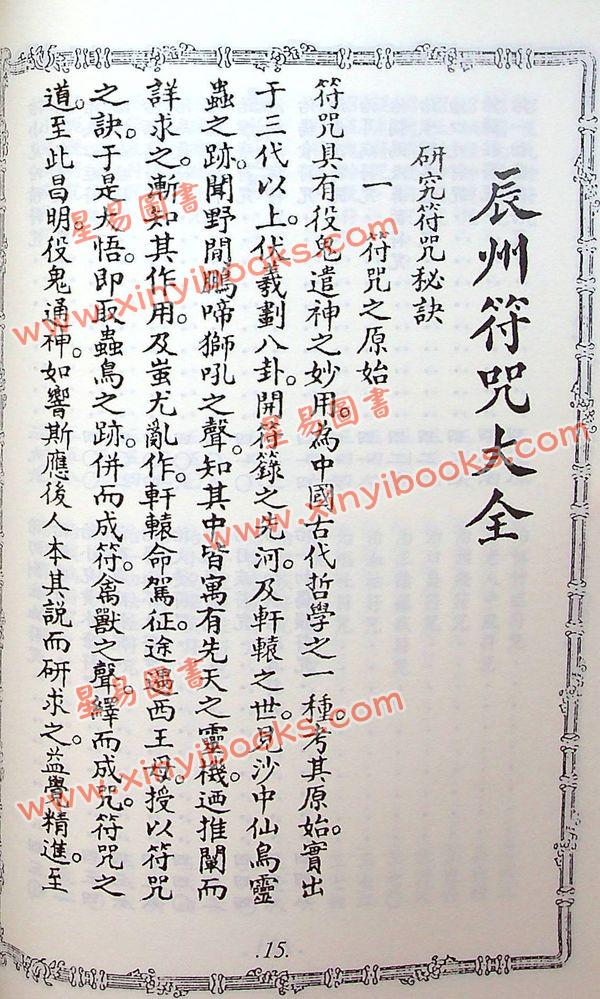 辰州符咒大全
研究符咒秘訣
一 符咒之原始
符咒具有役鬼遣神之妙用。為中國古代哲學之一種。考其原始。實出
于三代以上。伏羲劃八卦。開符籙之先河。及軒轅之世。見沙中仙鳥靈
蟲之跡。聞野間鵬啼獅吼之聲。知其中皆寓有先天之靈機。迺推闡而
詳求之。漸知其作用。及蚩尤亂作。軒轅命駕征途。遇西王母。授以符咒
之訣。于是大悟。即取蟲鳥之跡。併而成符。禽獸之聲。繹而成咒。符咒之
道。至此昌明。役鬼通神。如響斯應。後人本其說而研求之。益覺精進。至
.15.
星易圖書
www.xinyibooks.com
星易圖書
www.xinyibooks.com
星易圖書
www.xinyibooks.com